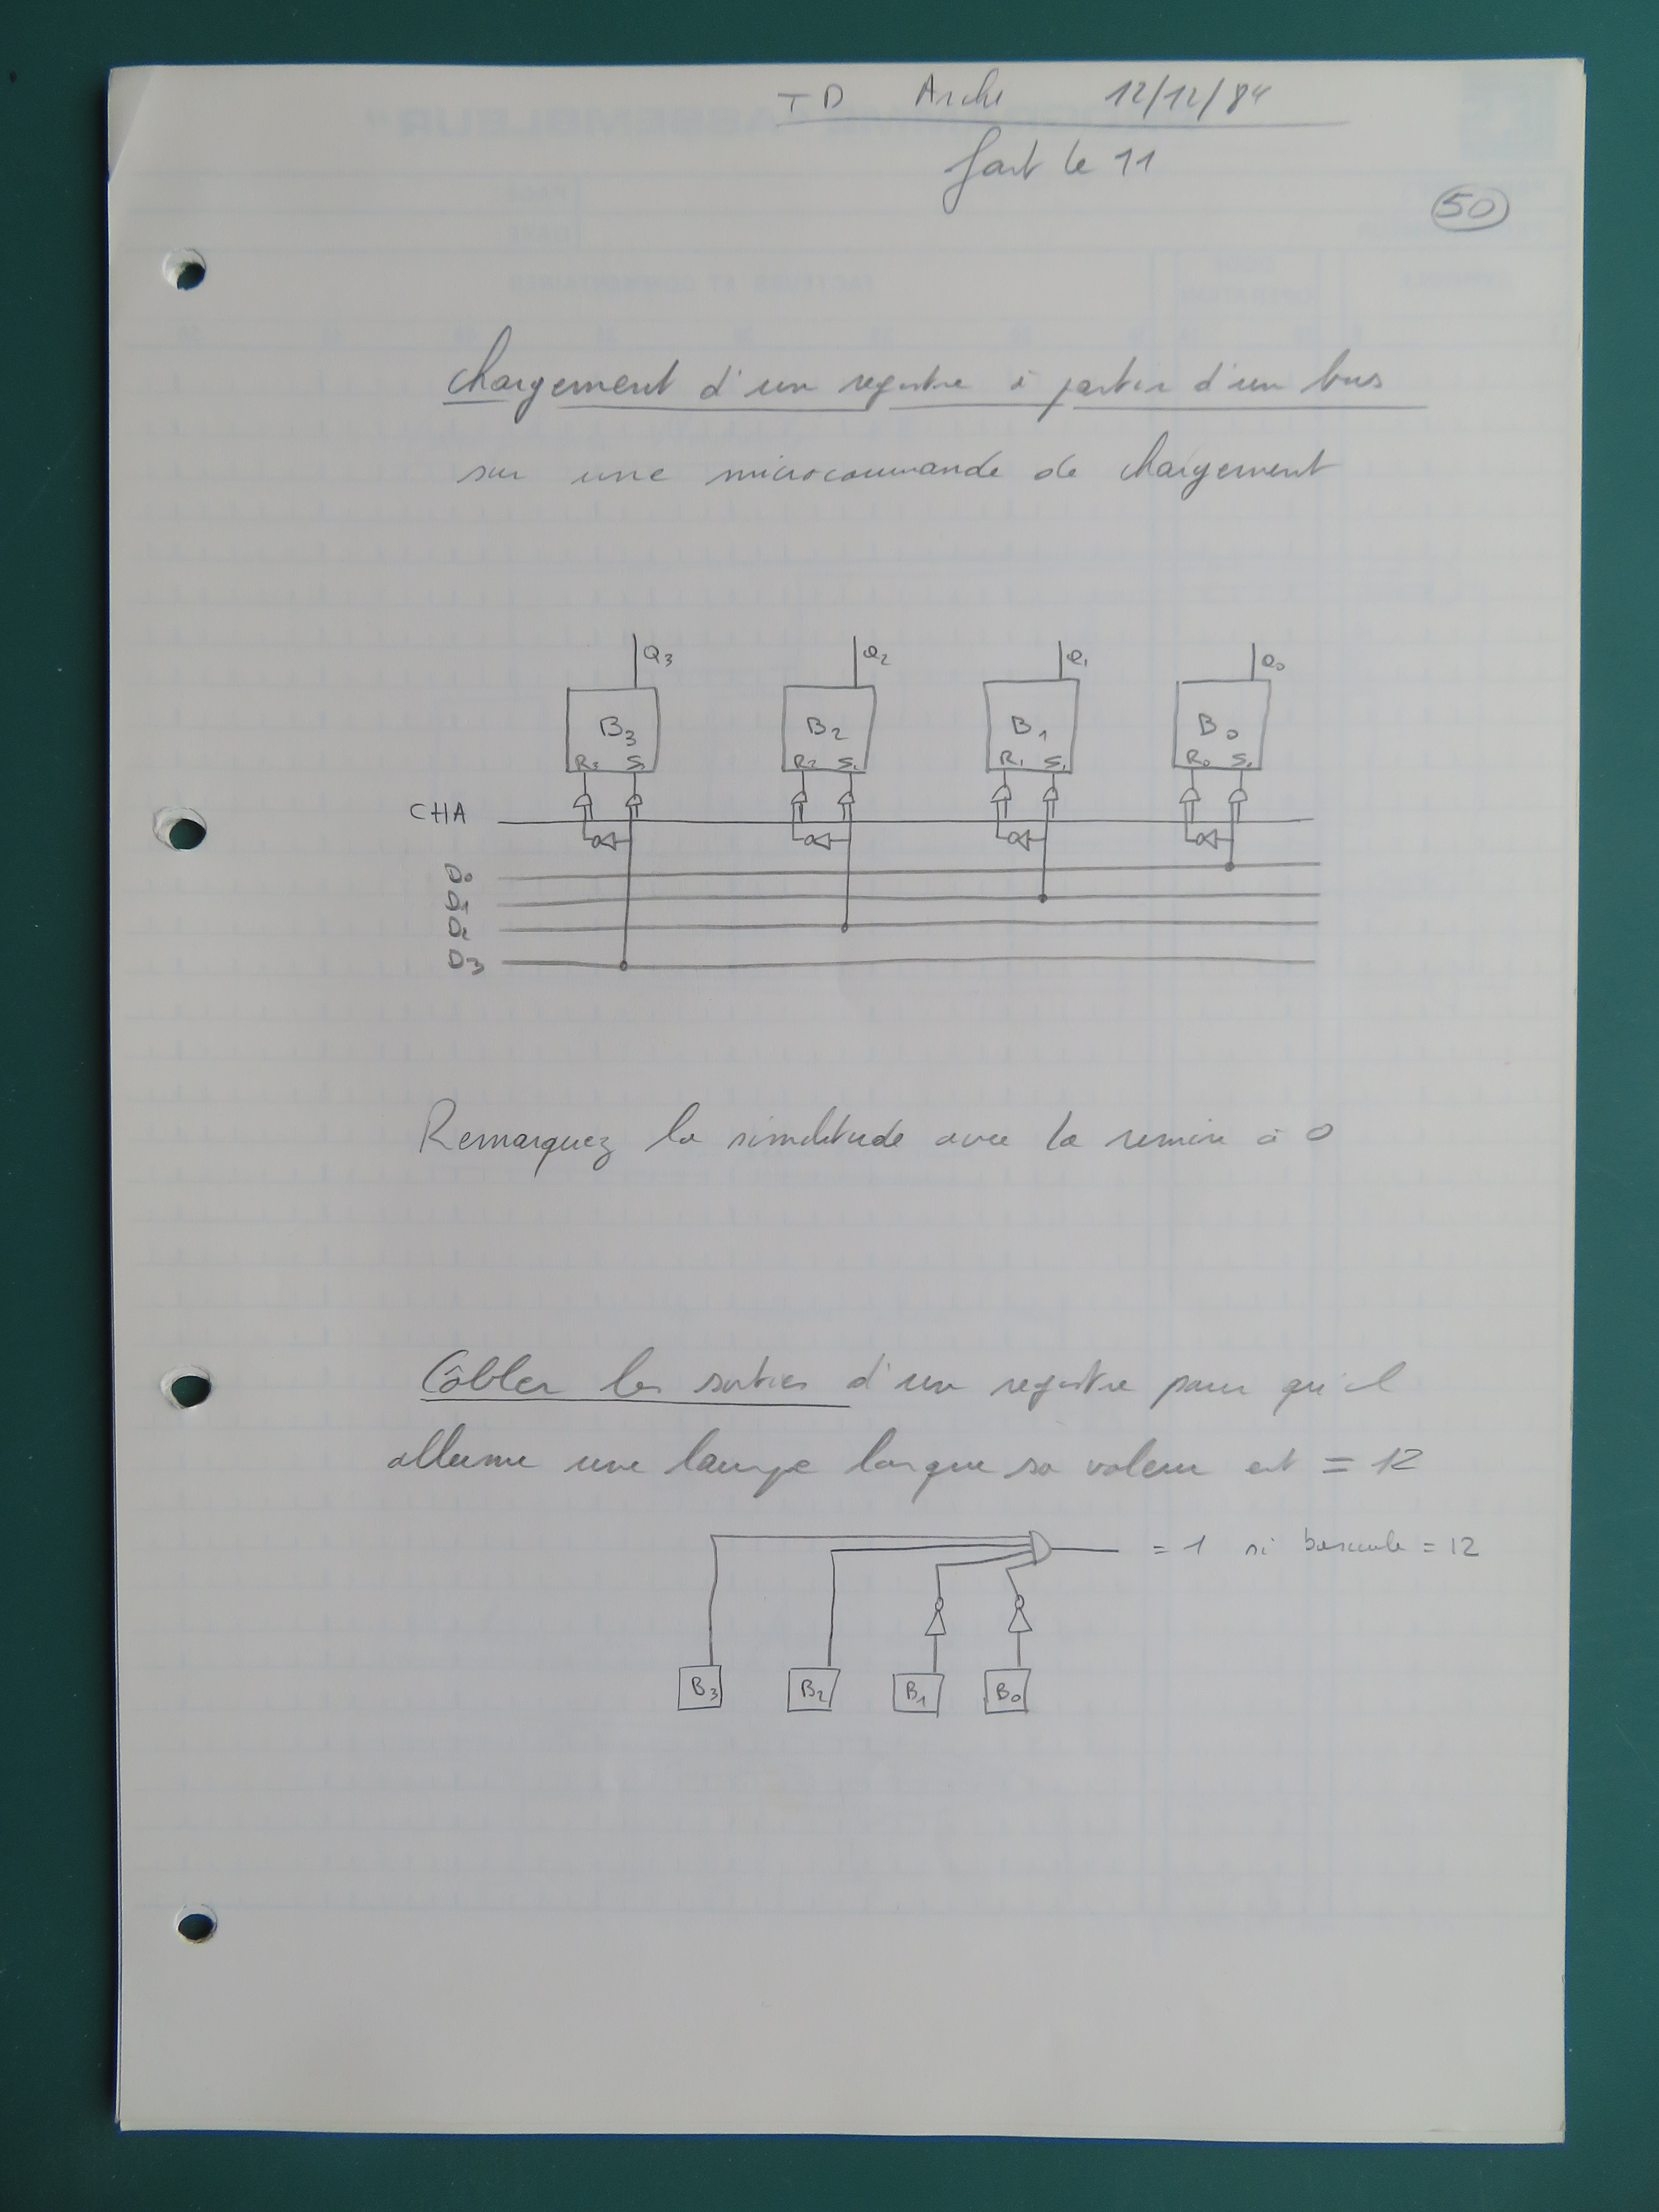 TD Archi 12/12/84
fait le 11
50
chargement d'un registre à partir d'un bus
sur une microcommande de chargement
Q3 Q2 Q1 Q0
B3 B2 B1 B0
R3 S3 R2 S2 R1 S1 R0 S0
CHA
D0
D1
D2
D3
Remarquez la similitude avec la remise à 0
Câbler les sorties d'un registre pour qu'il
allume une lampe lorsque sa valeur est = 12
= 1 si bascule = 12
B3 B2 B1 B0